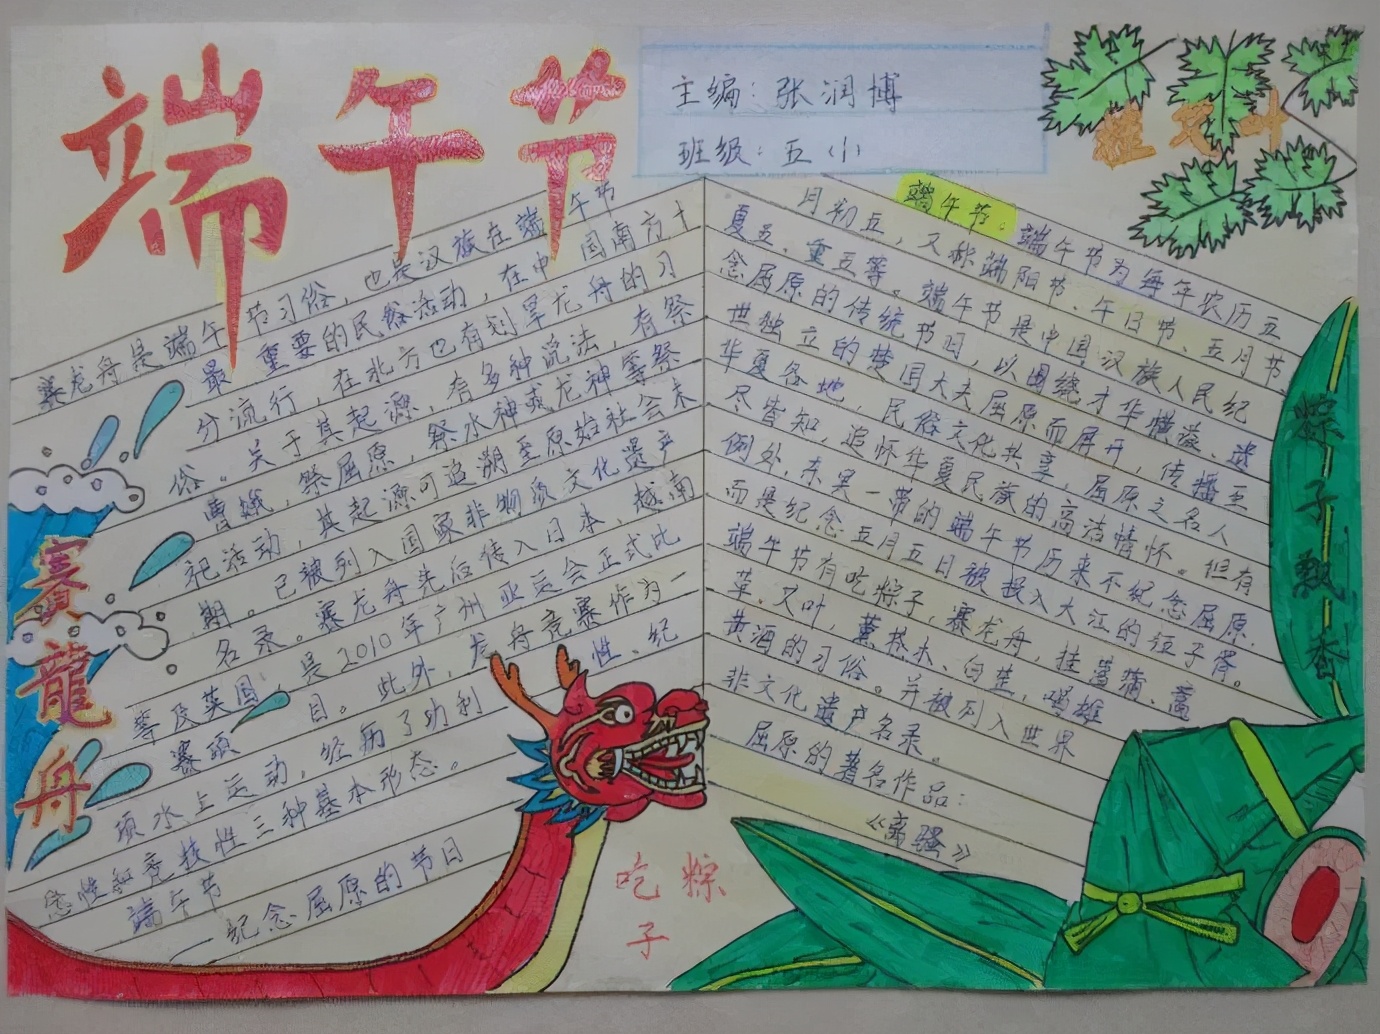 端午节
主编：张润博
班级：五（1）
艾叶
赛龙舟是端午节习俗，也是汉族在端午节
最重要的民俗活动，在中国南方十
分流行，在北方也有划旱龙舟的习
俗。关于其起源，有多种说法，有祭
曹娥，祭屈原，祭水神或龙神等祭
祀活动，其起源可追溯至原始社会末
期。已被列入国家非物质文化遗产
名录。赛龙舟先后传入日本、越南
等及英国，是2010年广州亚运会正式比
赛项目。此外，龙舟竞赛作为一
项水上运动，经历了功利性、纪
念性和竞技性三种基本形态。
端午节
——纪念屈原的节日
端午节。端午节为每年农历五
月初五，又称端阳节、午日节、五月节
夏五、重五等。端午节是中国汉族人民纪
念屈原的传统节日，以围绕才华横溢、遗
世独立的楚国大夫屈原而展开，传播至
华夏各地，民俗文化共享，屈原之名人
尽皆知，追怀华夏民族的高洁情怀。但有
例外，东吴一带的端午节历来不纪念屈原，
而是纪念五月五日被投入大江的伍子胥。
端午节有吃粽子，赛龙舟，挂菖蒲、蒿
草、艾叶，薰苍术、白芷，喝雄
黄酒的习俗。并被列入世界
非文化遗产名录。
屈原的著名作品：
《离骚》
赛龍舟
粽子飘香
吃粽
子